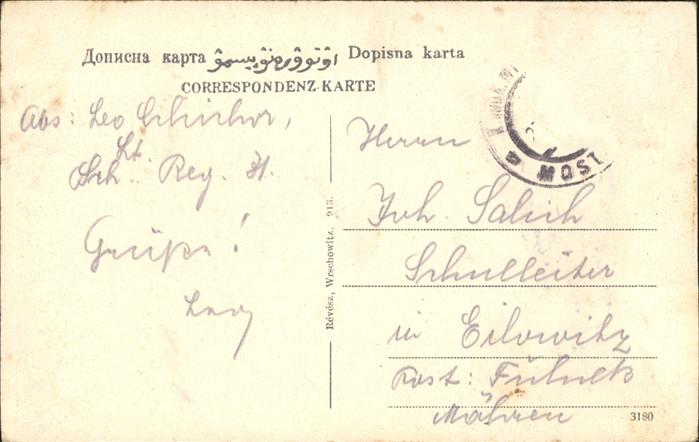 Дописна карта اۋتوۋرەنۋپيسمۋ Dopisna karta
CORRESPONDENZ-KARTE
Abs: Leo
Lt.
Sch. Reg. 31.
Grüße!
Leo
Herrn
Joh. Salich
Schulleiter
in Eilowitz
Post: Fulnek
Mähren
MOST
Révész, Wrschowitz. 913.
3180